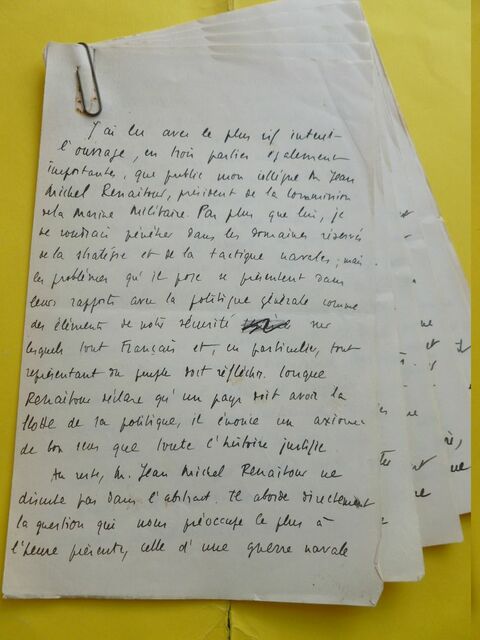 J'ai lu avec le plus vif intérêt
l'ouvrage, en trois parties également
importantes, que publie mon collègue M. Jean
Michel Renaitour, président de la Commission
de la Marine Militaire. Pas plus que lui, je
ne voudrais pénétrer dans les domaines réservés
de la stratégie et de la tactique navales ; mais
les problèmes qu'il pose se présentent dans
leurs rapports avec la politique générale comme
des éléments de notre sécurité sur
lesquels tout Français et, en particulier, tout
représentant du peuple doit réfléchir. Lorsque
Renaitour déclare qu'un pays doit avoir la
flotte de sa politique, il énonce un axiome
de bon sens que toute l'histoire justifie.
Au reste, M. Jean Michel Renaitour ne
discute pas dans l'abstrait. Il aborde directement
la question qui nous préoccupe le plus à
l'heure présente, celle d'une guerre navale